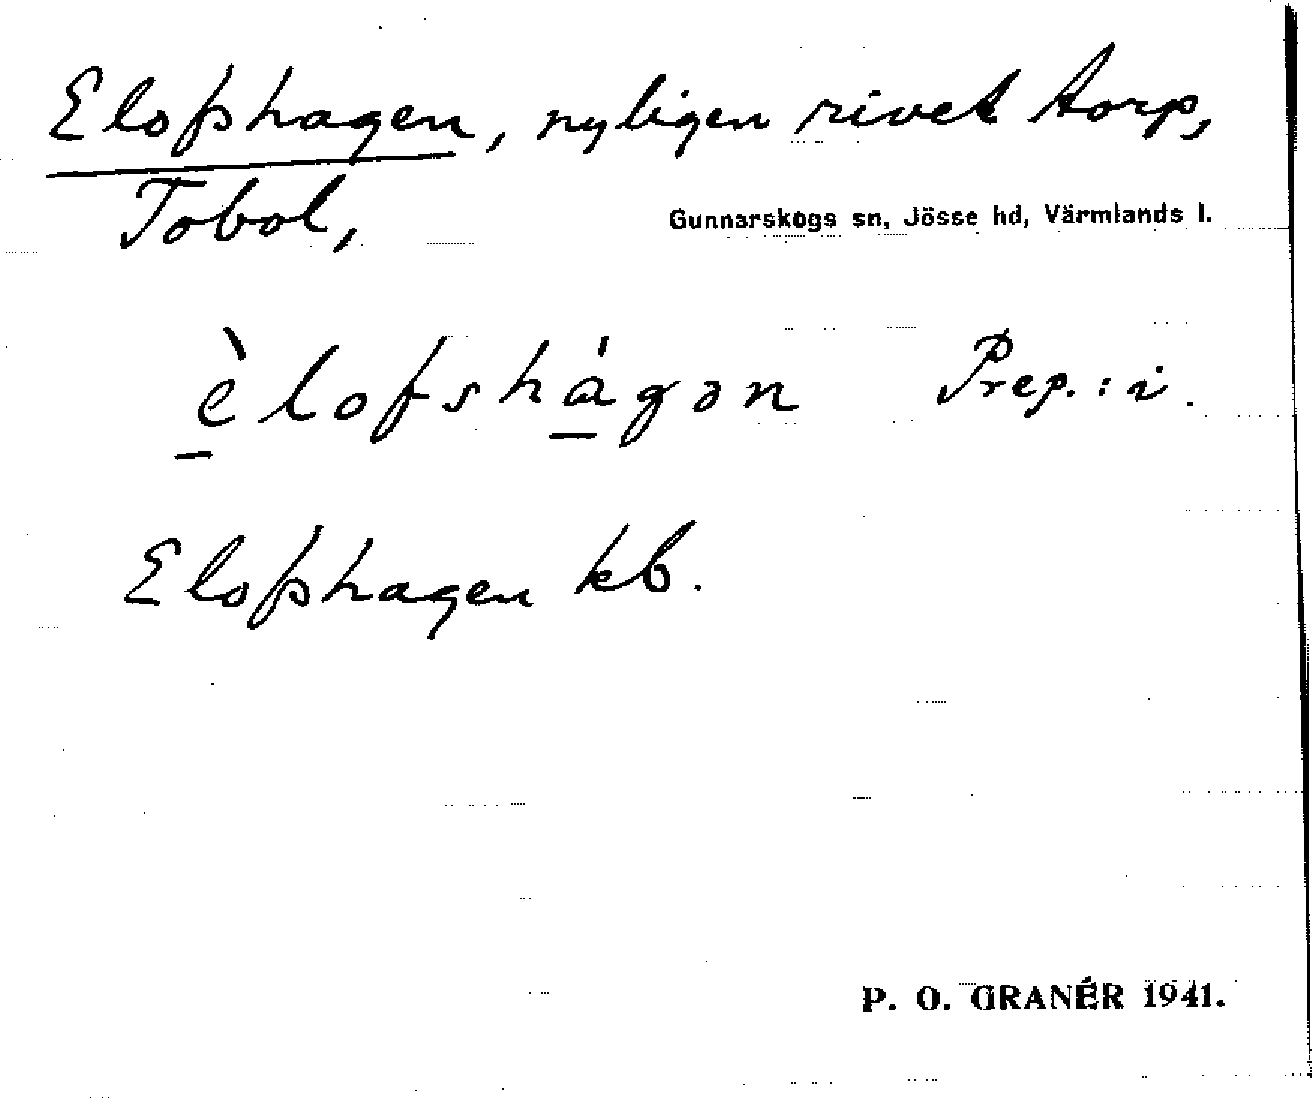 Elofshagen, nyligen rivet torp,
Tobol,
Gunnarskogs sn, Jösse hd, Värmlands l.
è̱lofshá̱gən Prep.: i.
Elofshagen kb.
P. O. GRANÉR 1941.